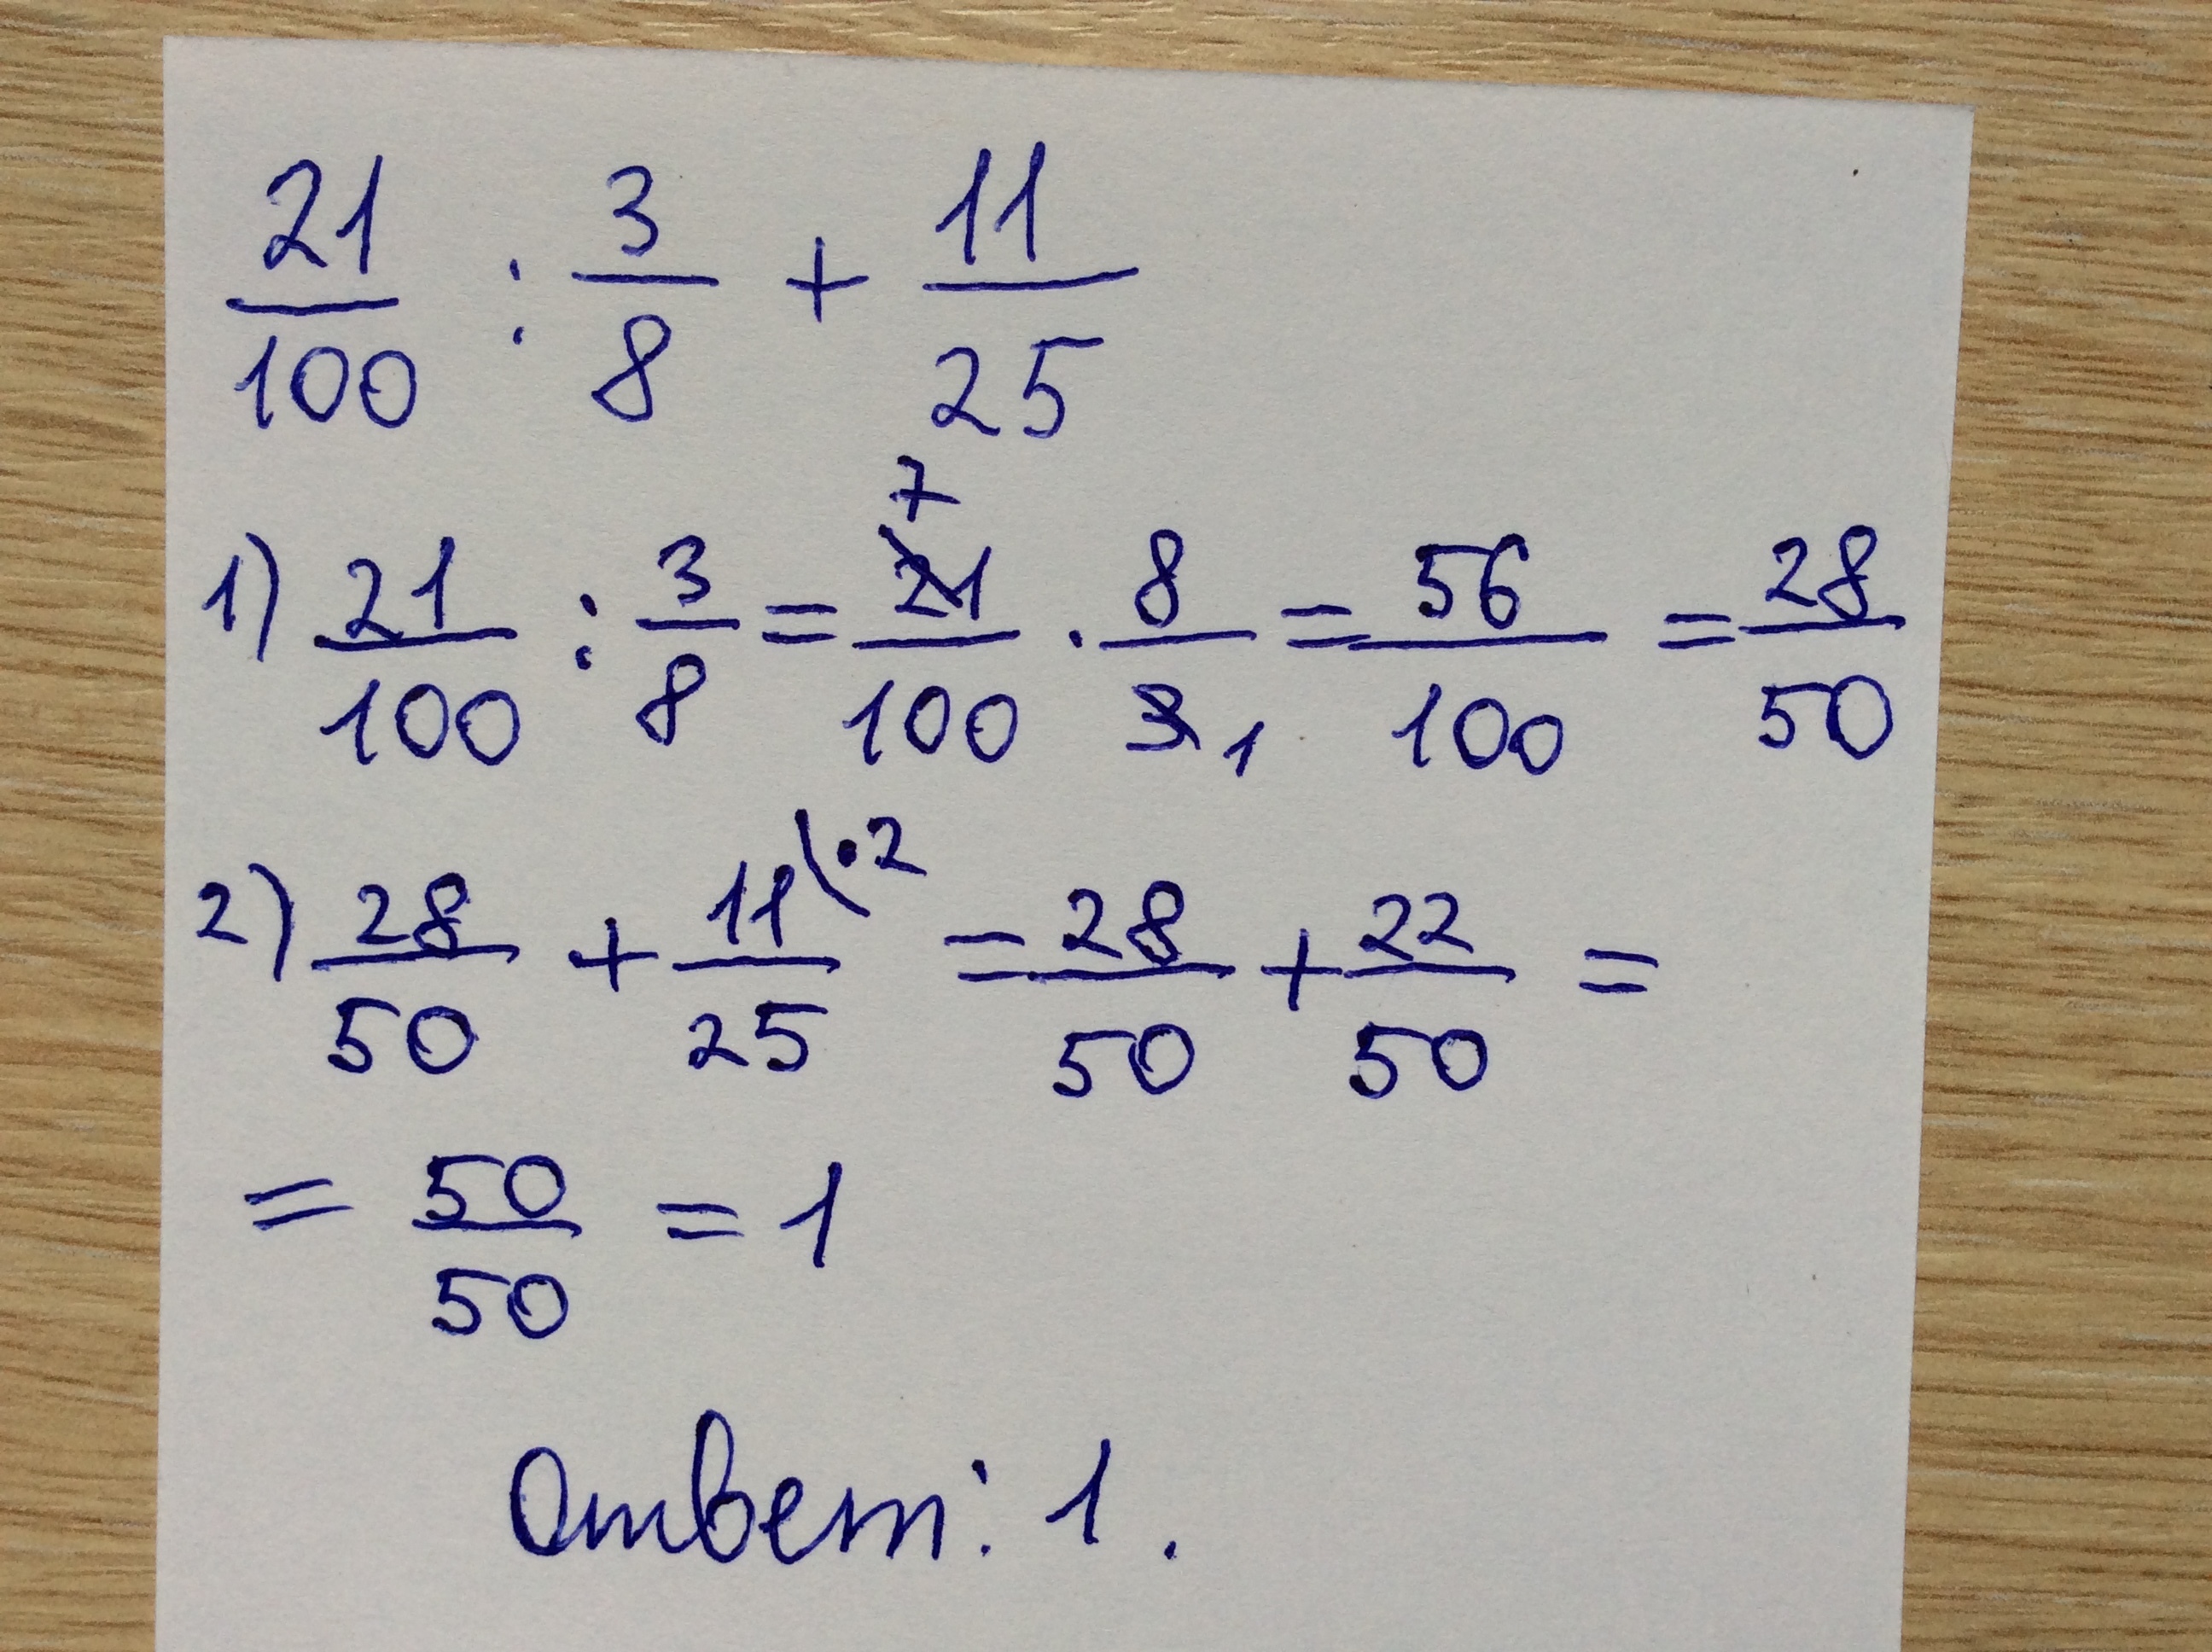 21/100 : 3/8 + 11/25
1) 21/100 : 3/8 = 21 7/100 · 8/3 1 = 56/100 = 28/50
2) 28/50 + 11\·2/25 = 28/50 + 22/50 =
= 50/50 = 1
Ответ: 1.